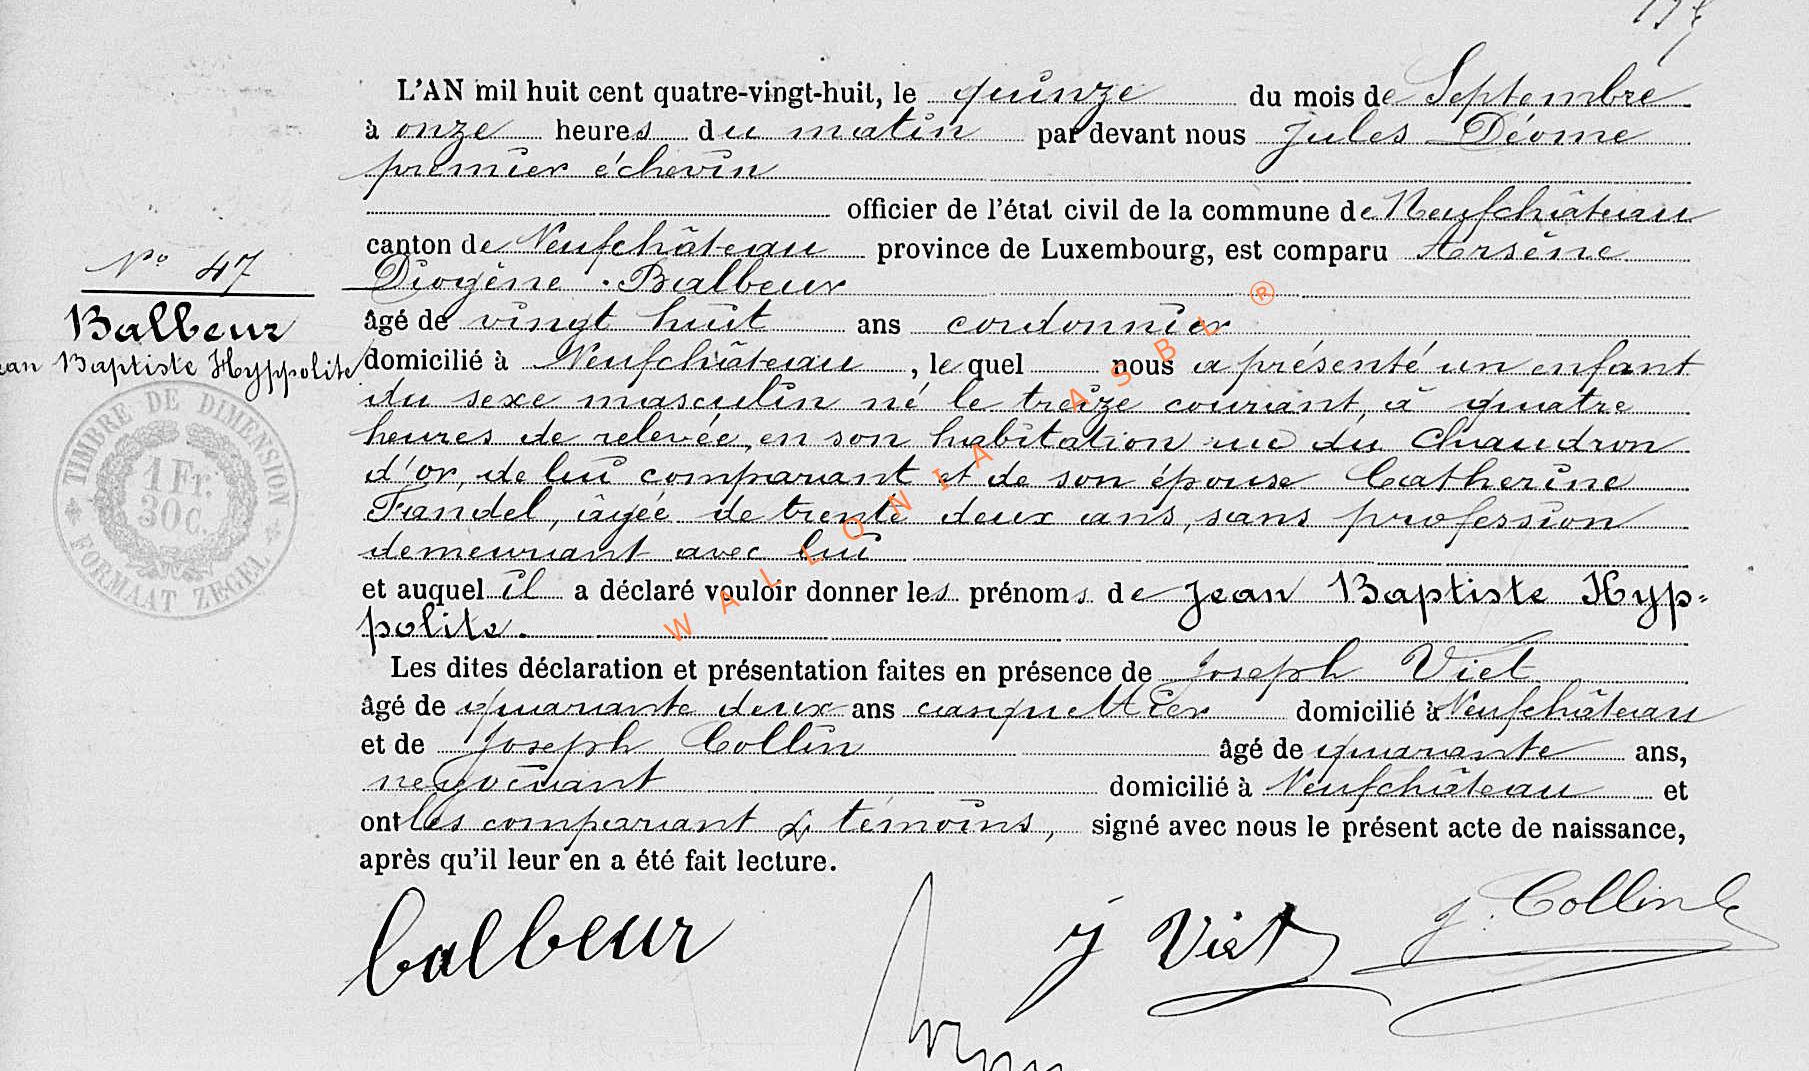 L'AN mil huit cent quatre-vingt-huit, le quinze du mois de Septembre
à onze heures du matin par devant nous Jules Déome
premier échevin
officier de l'état civil de la commune de Neufchâteau
canton de Neufchâteau province de Luxembourg, est comparu Arsène
Diogène Balbeur
âgé de vingt huit ans cordonnier
domicilié à Neufchâteau, le quel nous a présenté un enfant
du sexe masculin né le treize courant, à quatre
heures de relevée, en son habitation rue du Chaudron
d'or, de lui comparant et de son épouse Catherine
Fandel, âgée de trente deux ans, sans profession
demeurant avec lui
et auquel il a déclaré vouloir donner les prénoms de Jean Baptiste Hyp=
polite.
Les dites déclaration et présentation faites en présence de Joseph Viet
âgé de quarante deux ans casquettier domicilié à Neufchâteau
et de Joseph Collin âgé de quarante ans,
négociant domicilié à Neufchâteau et
ont les comparant & témoins, signé avec nous le présent acte de naissance,
après qu'il leur en a été fait lecture.
N° 47
Balbeur
Jean Baptiste Hyppolite
TIMBRE DE DIMENSION
1 Fr.
30C.
FORMAAT ZEGEL
WALLONIA ASBL ®
balbeur
J Viet
J. Collin